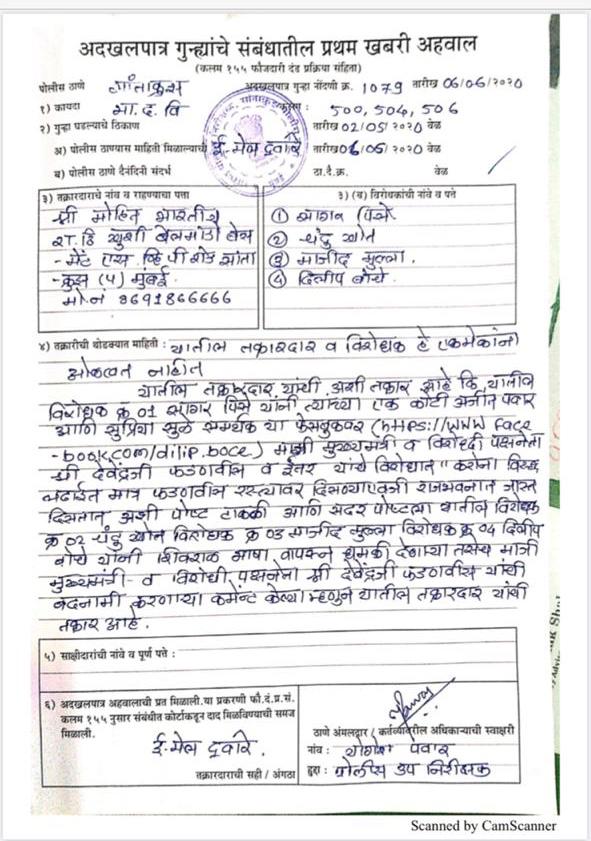 अदखलपात्र गुन्ह्यांचे संबंधातील प्रथम खबरी अहवाल
(कलम १५५ फौजदारी दंड प्रक्रिया संहिता)
पोलीस ठाणे सांताक्रुस अदखलपात्र गुन्हा नोंदणी क्र. 1079 तारीख 06/06/२०२०
१) कायदा भा.द.वि कलम : 500, 504, 506
२) गुन्हा घडल्याचे ठिकाण तारीख 02/05/२०२० वेळ
अ) पोलीस ठाण्यास माहिती मिळाल्याची ई-मेल द्वारे तारीख 06/05/२०२० वेळ
ब) पोलीस ठाणे दैनंदिनी संदर्भ ठा.दै.क्र. वेळ
३) तक्रारदाराचे नांव व राहण्याचा पत्ता
श्री मोहित भारतीय
रा.ठि खुशी बेलमोंडो बेस
- मेंट एस. व्हि पी रोड सांता
- क्रुझ (प) मुंबई.
मो.नं 8691866666
३) (ब) विरोधकांची नांवे व पत्ते
① सागर पिसे
② चंदु खोत
③ माजीद मुल्ला.
④ दिलीप बोचे.
४) तक्रारीची थोडक्यात माहिती : यातील तक्रारदार व विरोधक हे एकमेकांना
ओळखत नाहीत
यातील तक्रारदार यांची अशी तक्रार आहे कि, यातील
विरोधक क्र 01 सागर पिसे यांनी त्यांच्या एक कोटी अजीत पवार
आणि सुप्रिया सुळे समर्थक या फेसबुकवर (https://www face
-book.com/dilip.boce) माजी मुख्यमंत्री व विरोधी पक्षनेता
श्री देवेंद्रजी फडणवीस व ईतर यांचे विरोधात "करोना विरुद्ध
लढाईत मात्र फडणवीस रस्त्यावर दिसण्याएवजी राजभवनात जास्त
दिसतात अशी पोष्ट टाकली आणि सदर पोष्टला यातील विरोधक
क्र 02 चंदु खोत विरोधक क्र 03 माजीद मुल्ला विरोधक क्र 04 दिलीप
बोचे यांनी शिवराळ भाषा वापरून धमकी देणाऱ्या तसेच माजी
मुख्यमंत्री - व विरोधी पक्षनेता श्री देवेंद्रजी फडणवीस यांची
बदनामी करणाऱ्या कमेंट केल्या म्हणुन यातील तक्रारदार यांची
तक्रार आहे.
५) साक्षीदारांची नांवे व पूर्ण पत्ते :
६) अदखलपात्र अहवालाची प्रत मिळाली.या प्रकरणी फौ.दं.प्र.सं.
कलम १५५ नुसार संबंधीत कोर्टाकडून दाद मिळविण्याची समज
मिळाली.
ई-मेल द्वारे.
तक्रारदाराची सही / अंगठा
ठाणे अंमलदार / कर्तव्यावरील अधिकाऱ्याची स्वाक्षरी
नांव : योगेश पवार
हुद्दा : पोलीस उप निरीक्षक
Scanned by CamScanner